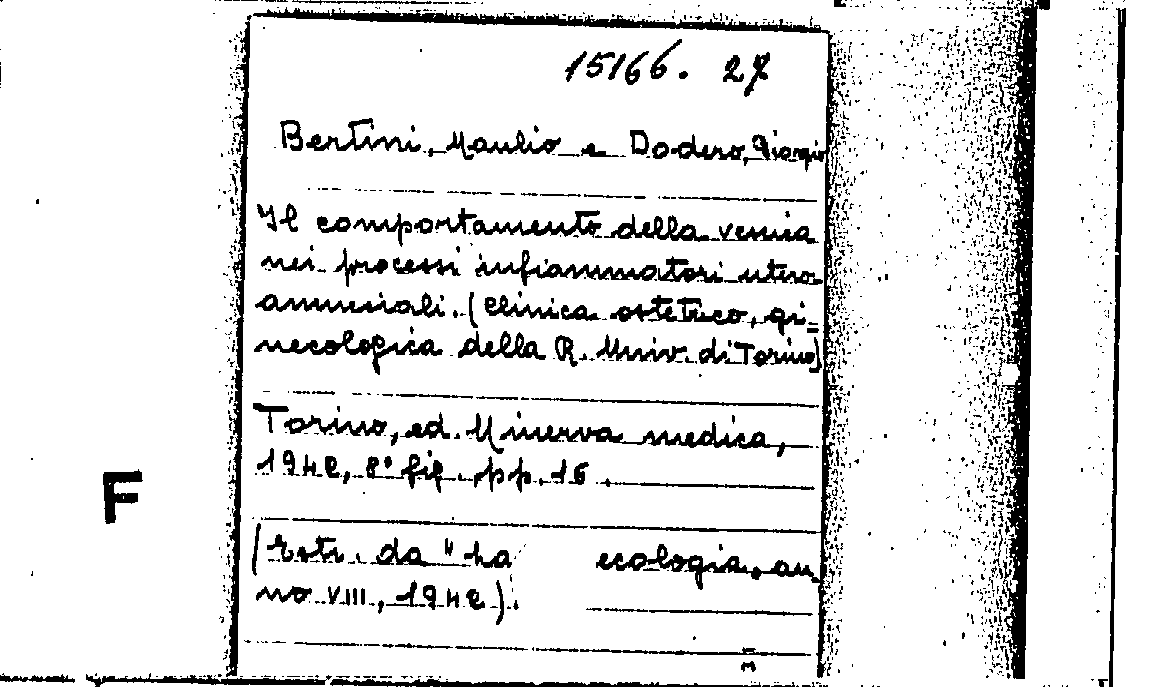 15166. 27
Bertini, Manlio e Dodero, Giorgio
Il comportamento della vescica
nei processi infiammatori utero
annessiali. (Clinica ostetrico, gi-
necologica della R. Univ. di Torino)
Torino, ed. Minerva medica,
1942, 8° fig. pp. 16.
F
(Estr. da "La ecologia, an-
no VIII, 1942).